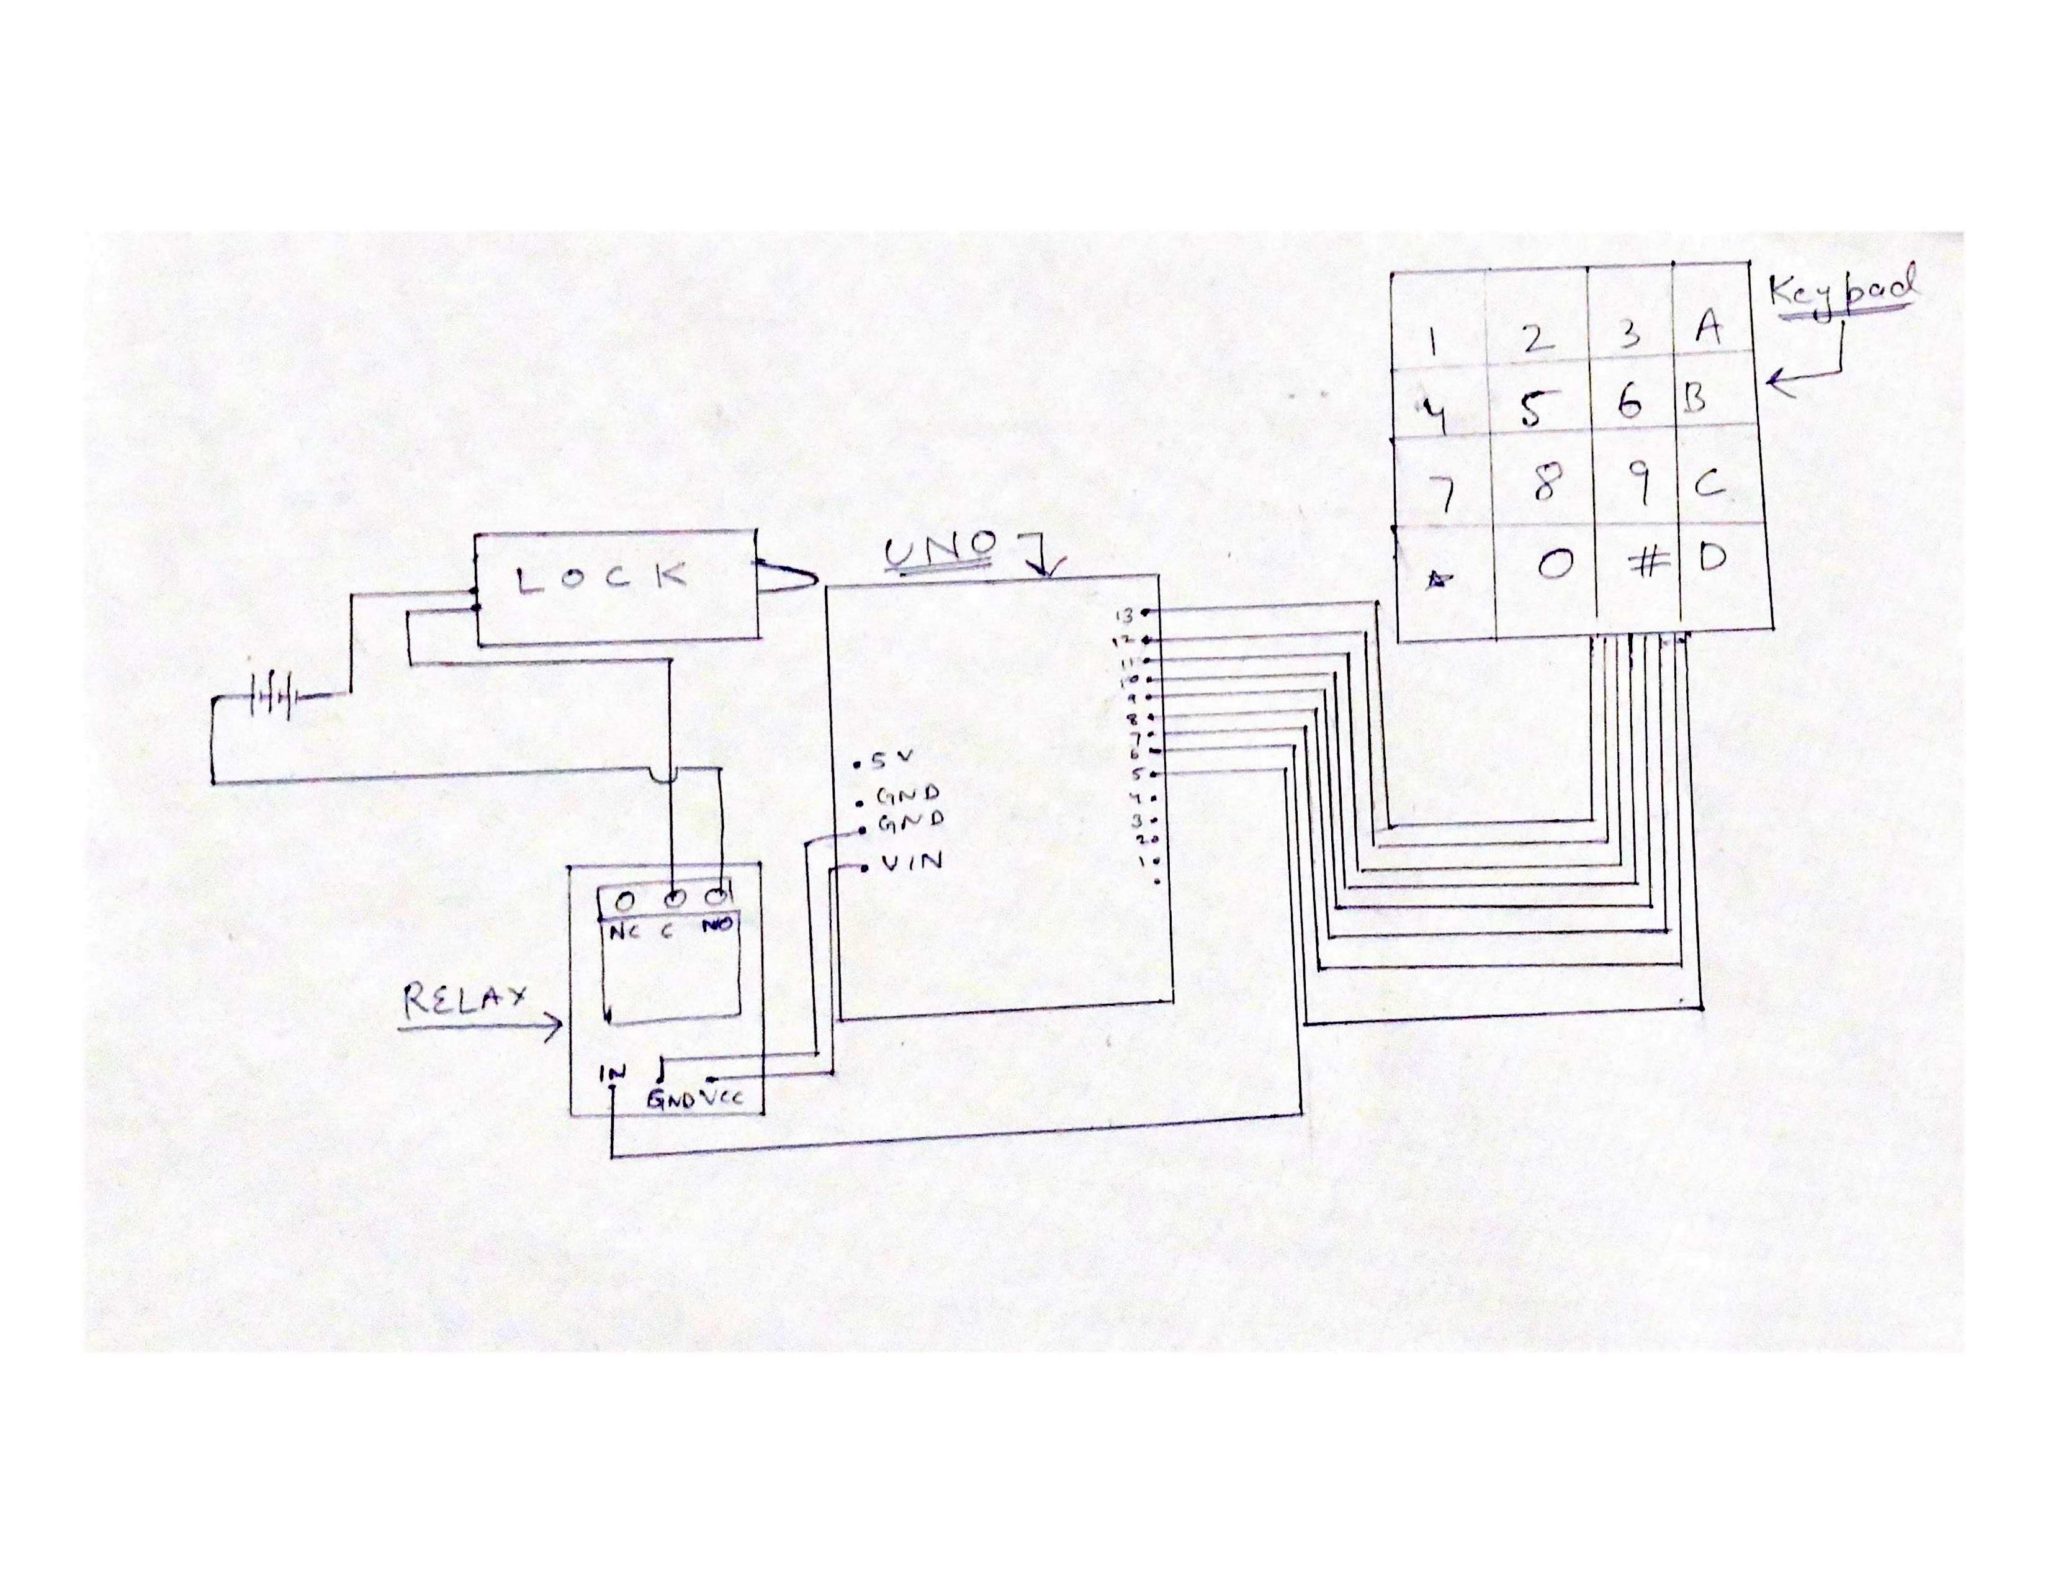 Keypad
1 2 3 A
4 5 6 B
7 8 9 C
* 0 # D
LOCK
UNO
13
12
11
10
9
8
7
6
5
4
3
2
1
5V
GND
GND
VIN
NC C NO
RELAX
IN GND VCC